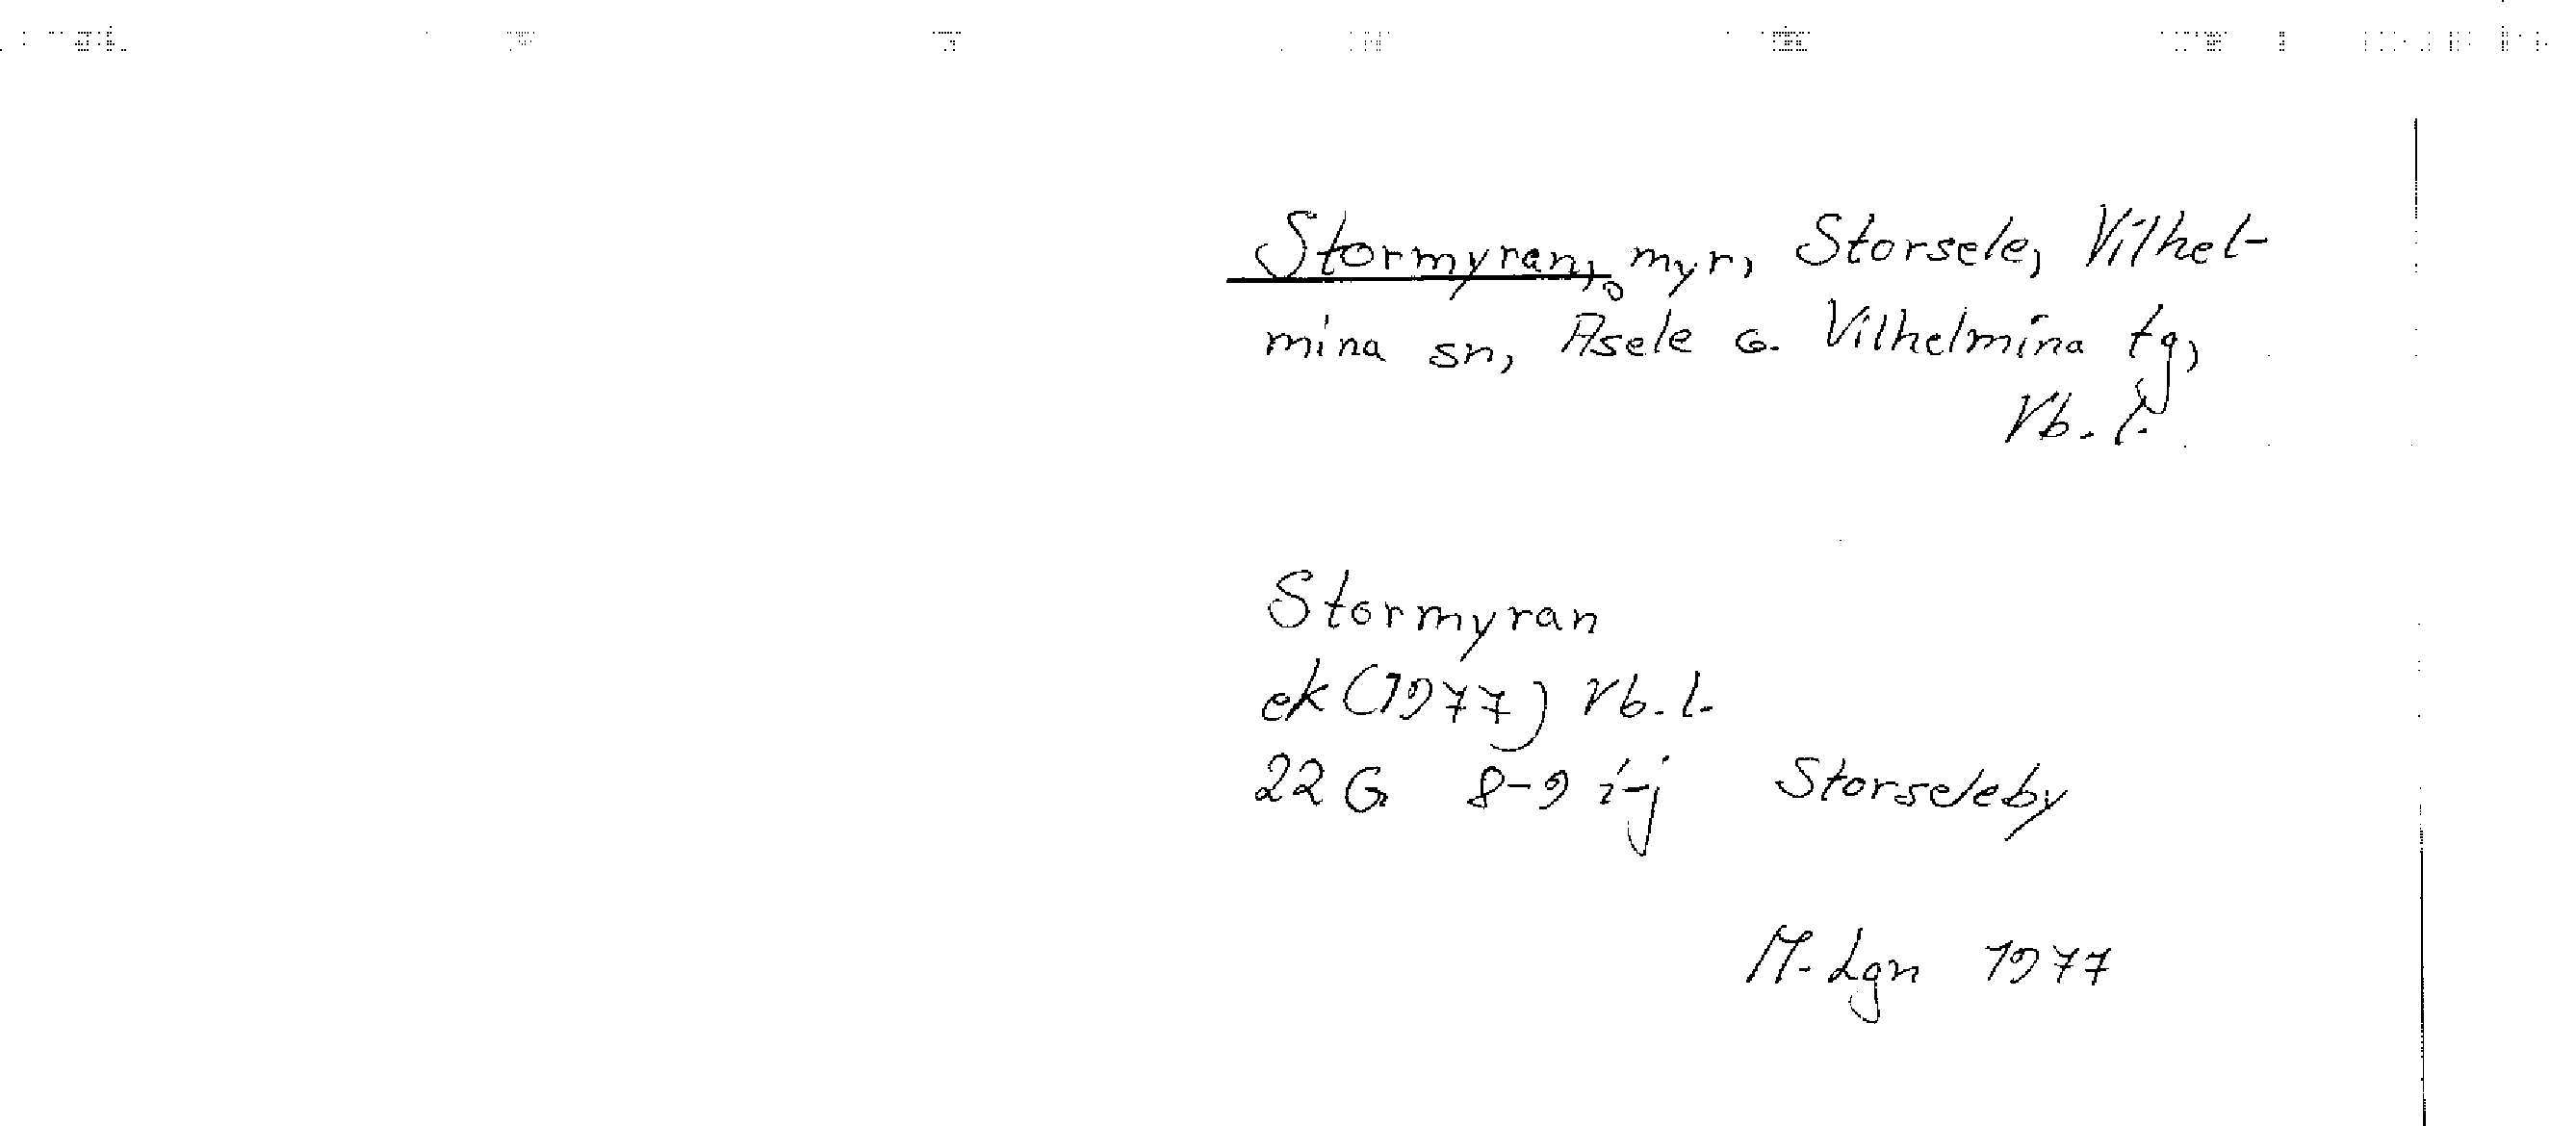 Stormyran, myr, Storsele, Vilhel-
mina sn, Åsele o. Vilhelmina tg,
Vb. l.
Stormyran
ek (1977) Vb. l.
22 G 8-9 i-j Storseleby
M. Lgn 1977